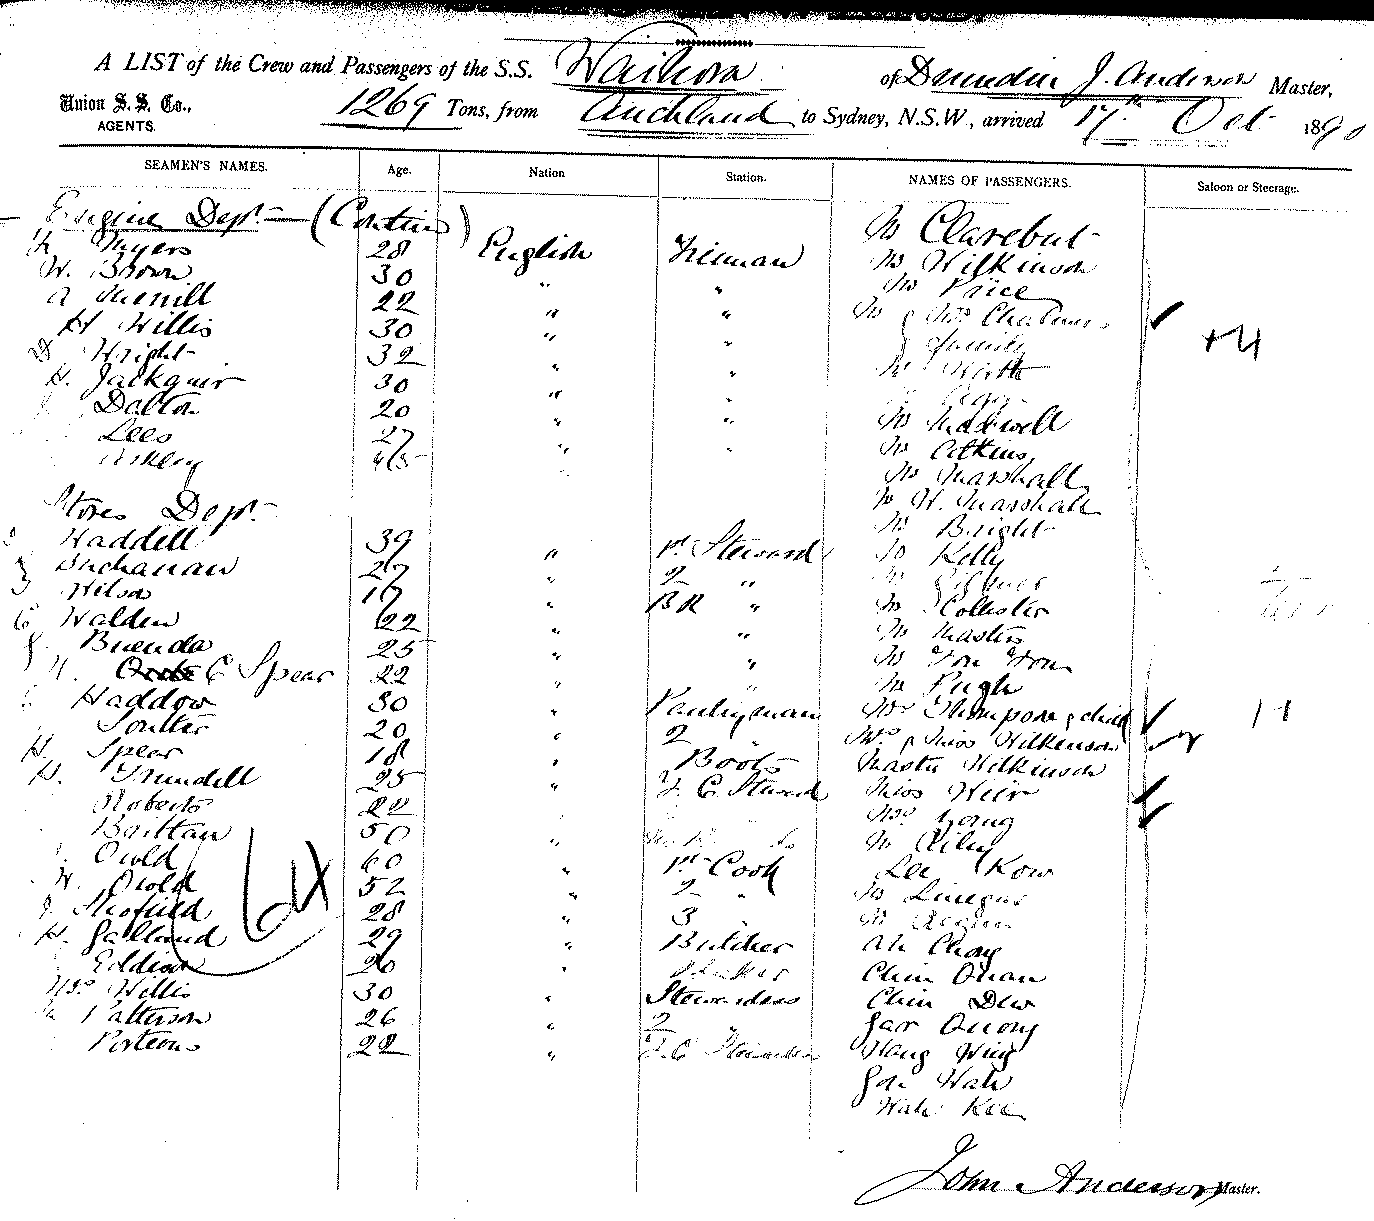 A LIST of the Crew and Passengers of the S.S. Waihora of Dunedin J. Anderson Master,
Union S. S. Co., AGENTS. 1269 Tons, from Auckland to Sydney, N.S.W., arrived 17th Oct 1890
SEAMEN'S NAMES. Age. Nation Station. NAMES OF PASSENGERS. Saloon or Steerage.
Engine Dept. — (Contin) Mr Clarebut
Myers 28 English Fireman Mr Wilkinson
W. Brown 30 " " Mr Price
A 22 " " Mr & Mrs Chalmers
H Willis 30 " " family +4
Wright 32 " " Mr North
H. 30 " "
Dalton 20 " " Mr Maxwell
Lees 27 " " Mr Atkins
45 Mr Marshall
Stores Dept. Mr W. Marshall
Mr Bright
Waddell 39 " 1st Steward Mr Kelly
Buchanan 27 " 2 " Mr
Wilson 17 " BR " Mr Collister
C Walden 22 " " Mr Masters
Buenda 25 " " Mr Fou Fou
C Spear 22 " " Mr Pugh
Haddow 30 " Pantryman Mrs Thompson & child
Soulter 20 " 2 " Mrs & Miss Wilkinson
H. Spear 18 " Boots Master Wilkinson
H. Trundell 25 " F. C. Steward Miss Weir
Roberts 22 Mrs Young
Brittan 50 " Mr Riley
Owld 60 " 1st Cook Lee Kow
W. Owld 52 " 2 " Mr
J. Shofield 28 " 3 " Mr
H. Galland 29 " Butcher Ah Chong
Eddison 20 " Chin Quan
Mrs Willis 30 " Stewardess Chin Dew
Patterson 26 " 2 " Gar Quong
Porteous 22 " F.C. Stewardess Hang Wing
Gon Wah
Wah Kee
64
John Anderson Master.